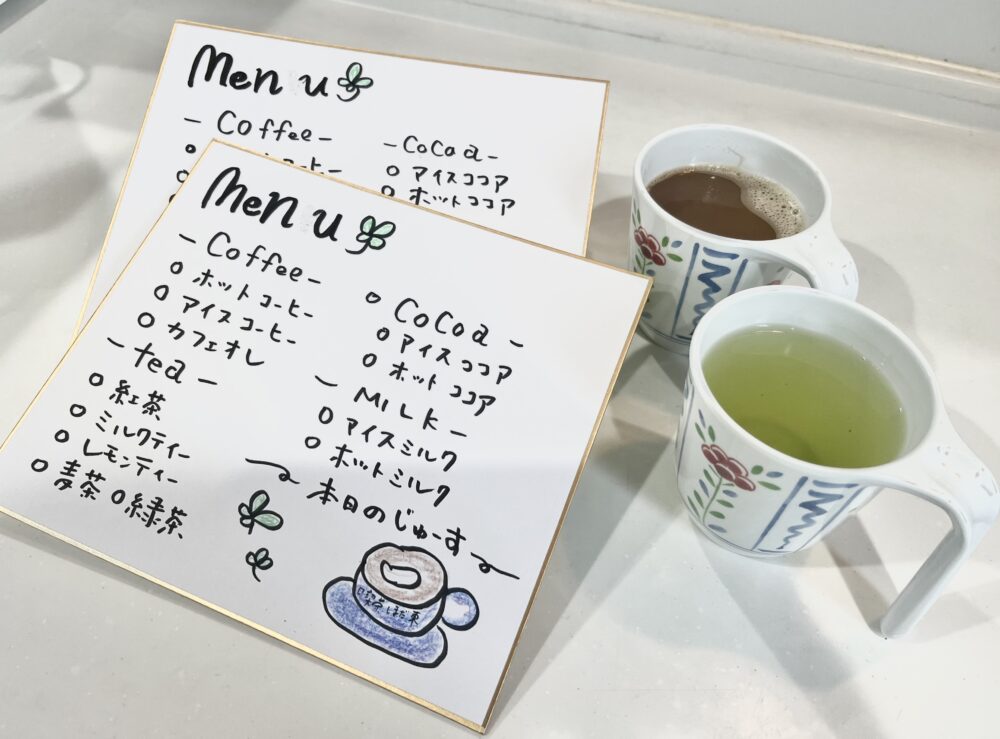 Menu
- Coffee -
コーヒー
- Cocoa -
○ アイスココア
○ ホットココア
Menu
- Coffee -
○ ホットコーヒー
○ アイスコーヒー
○ カフェオレ
- tea -
○ 紅茶
○ ミルクティー
○ レモンティー
○ 麦茶 ○ 緑茶
○ Cocoa -
○ アイスココア
○ ホットココア
- MILK -
○ アイスミルク
○ ホットミルク
~ 本日のじゅーす ~
喫茶